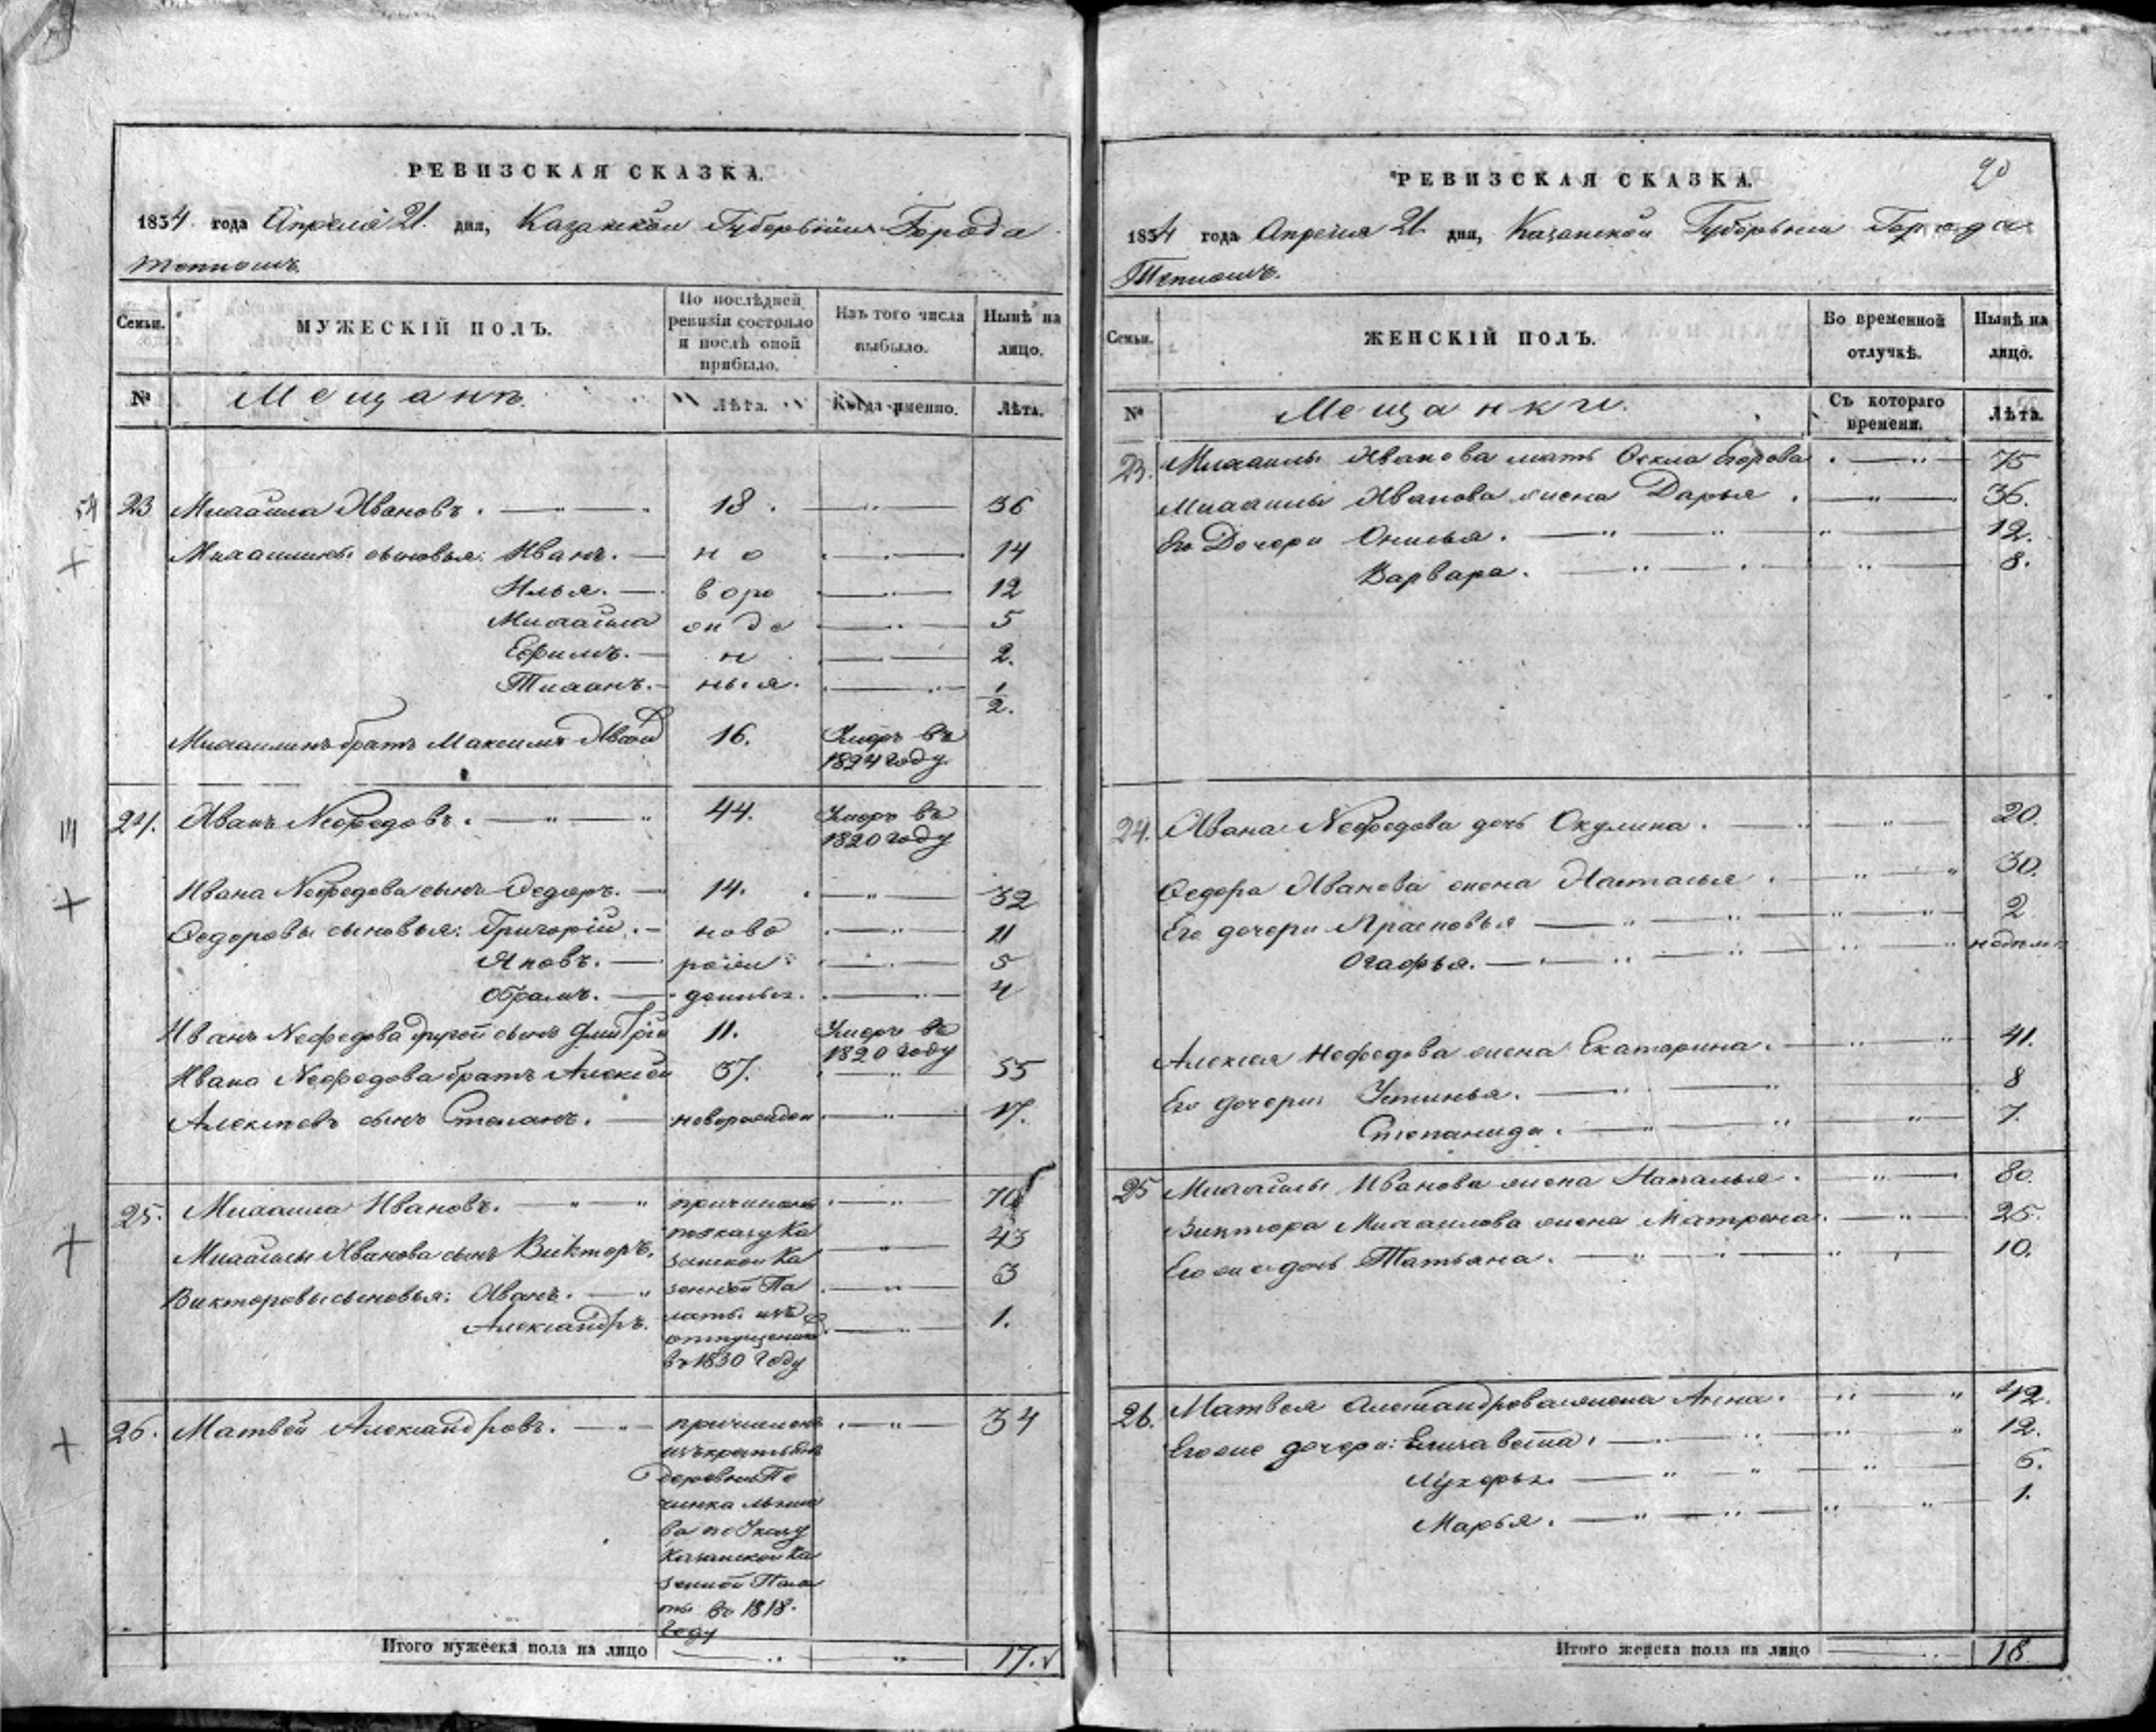 РЕВИЗСКАЯ СКАЗКА.
1834 года Апреля 21. дня, Казанской Губернии Города
Семьи.
МУЖЕСКІЙ ПОЛЪ.
По послѣдней ревизіи состояло и послѣ оной прибыло.
Изъ того числа выбыло.
Нынѣ на лицо.
№
Мещанъ.
Лѣта.
Когда именно.
Лѣта.
54
23 Михаила Ивановъ. 18. 36
Михаилины сыновья: Иванъ. но 14
Илья. воро 12
Михаила 5
Ефимъ. 2.
Тиханъ. ныя. 1/2.
Михаилинъ братъ Максимъ 16. Умеръ въ
1824 году
24. Иванъ Нефедовъ. 44. Умеръ въ
1820 году
Ивана Нефедова сынъ Федоръ. 14. 32
Федоровы сыновья: Григорій. ново 11
Яковъ. 5
Обрамъ. 4
Иванъ Нефедова другой сынъ Дмитрій 11. Умеръ въ
1820 году
Ивана Нефедова братъ Алексей 37. 55
Алексѣевъ сынъ Степанъ. 17.
25. Михаила Ивановъ. причислены 70
Михаилы Иванова сынъ Викторъ. по указу Ка 43
занской Ка
Викторовы сыновья: Иванъ. зенной Па 3
Александръ. латы изъ 1.
въ 1830 году
26. Матвей Александровъ. причисленъ 34
деревни По
чинка
ва по Указу
Казанской Ка
зенной Пала
ты въ 1818.
году
Итого мужеска пола на лицо 17.
РЕВИЗСКАЯ СКАЗКА.
90
1834 года Апреля 21 дня, Казанской Губернии Города
Семьи.
ЖЕНСКІЙ ПОЛЪ.
Во временной отлучкѣ.
Нынѣ на лицо.
№
Мещанки.
Съ котораго времени.
Лѣта.
23. Михаилы Иванова мать Фекла Егорова 75
Михаилы Иванова жена Дарья. 36.
Его Дочери Онисья. 12.
Варвара. 8.
24. Ивана Нефедова дочь Окулина. 20.
Федора Иванова жена Настасья. 30.
Его дочери Прасковья 2
Огафья.
Алексея Нефедова жена Екатерина. 41.
Его дочери: Устинья. 8
Степанида. 7.
25 Михайлы Иванова жена Наталья. 80.
Виктора Михаилова жена Матрена. 25.
Его же дочь Татьяна. 10.
26. Матвея Александрова жена Анна. 42.
Его же дочери: Елизавета. 12.
Лукерья. 6.
Марья. 1.
Итого женска пола на лицо 18